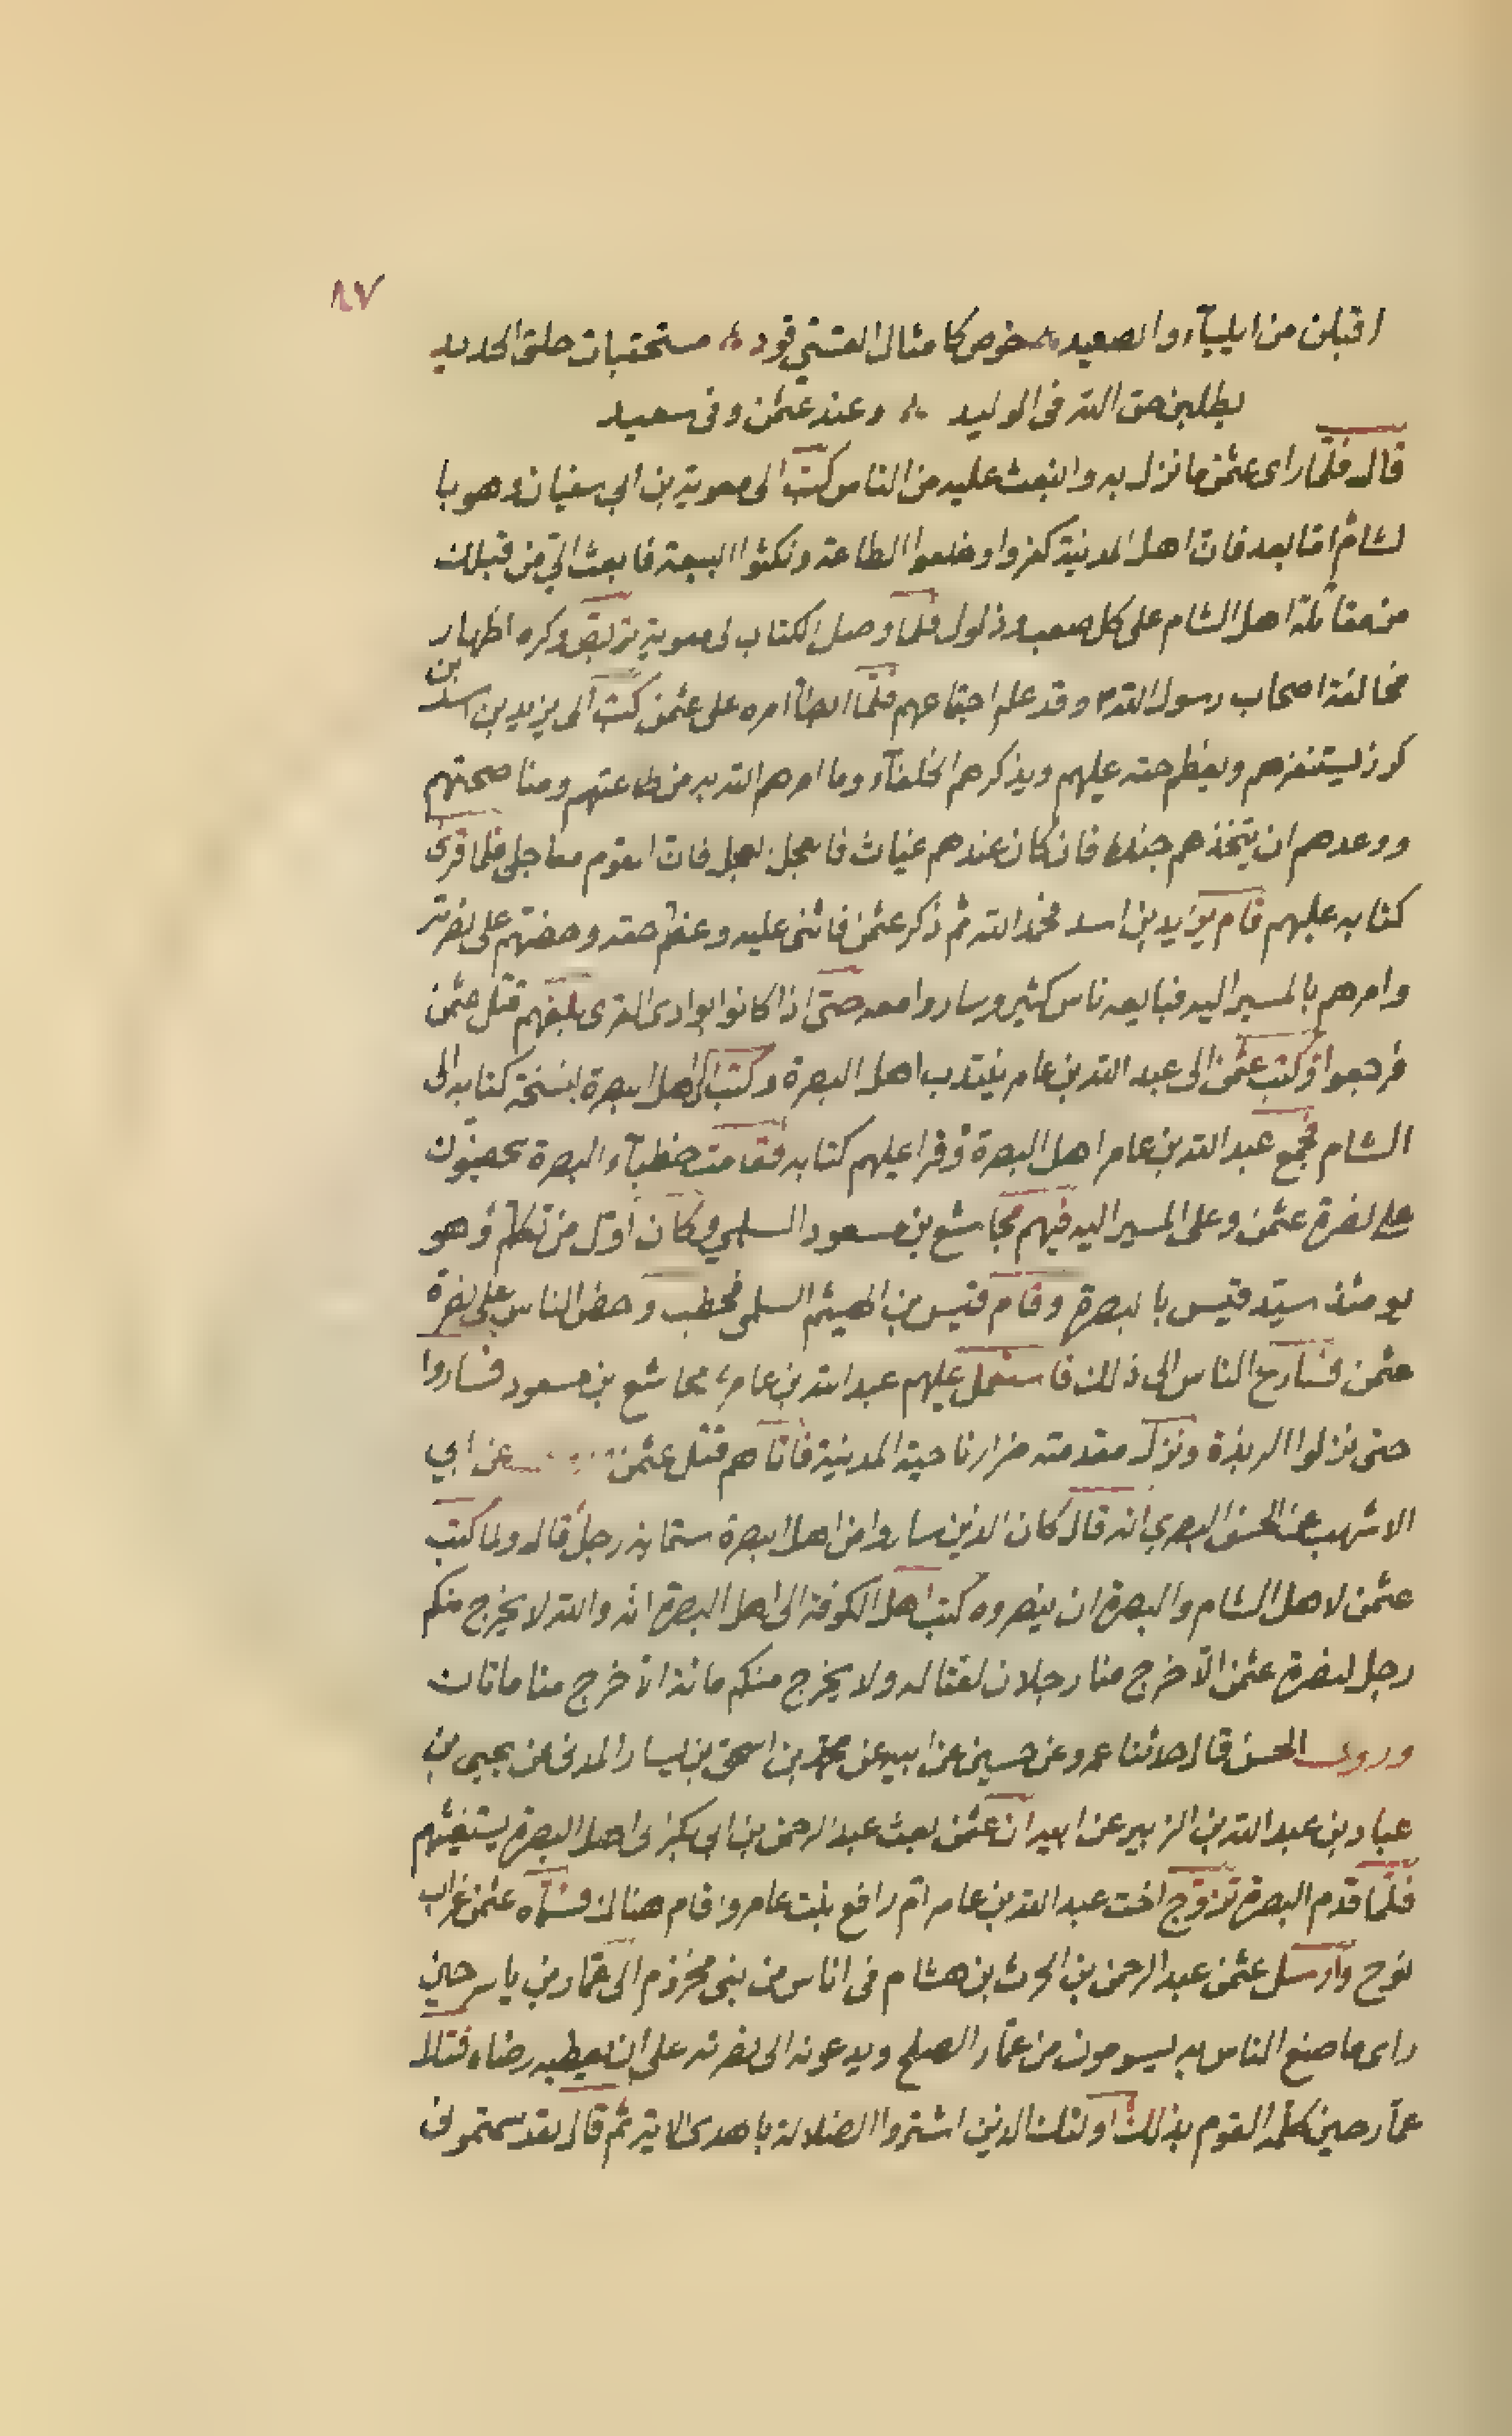 ٨٧
اقبلن من ايليآء والصعيد ∴ خوص كامثال القسي قود ∴ مستحقبات حلق الحديد
يطلبن حق الله في الوليد ∴ وعند عثمن وفي سعيد
قال فلمّا راى عثمن ما نزل به وانبعث عليه من الناس كتب الى معوية بن ابي سفيان وهو با
لشام امّا بعد فان اهل المدينة كفروا وخلعوا الطاعة ونكثوا البيعة فابعث اليّ من قبلك
من مقاتلة اهل الشام على كل صعب وذلول فلما وصل الكتاب لى معوية تربّص وكره اظهار
مخالفة اصحاب رسول الله ص وقد علم اجتماعهم فلمّا ابطأ امره على عثمن كتب الى يزيد بن اسد بن
كرز ليستنفرهم ويعظم حقه عليهم ويذكرهم الخلفآء وما امرهم الله به من طاعتهم ومناصحتهم
ووعدهم ان يتخذهم جندا فان كان عندهم غياث فالعجل العجل فان القوم معاجلي فلما قرئ
كتابه عليهم قام يزيد بن اسد فحمد الله ثم ذكر عثمن فاثنى عليه وعظم حقه وحضهم على نصرته
وامرهم بالمسير اليه فبايعه ناس كثير وساروا معه حتى اذا كانوا بوادى القرى بلغهم قتل عثمن
فرجعوا وكتب عثمن الى عبد الله بن عامر ينتدب اهل البصرة وكتب الى اهل البصرة بنسخة كتابه الى
الشام فجمع عبد الله بن عامر اهل البصرة وقرا عليهم كتابه فقامت خطبآء البصرة يحضون
على نصرة عثمن وعلى المسير اليه فيهم مجاشع بن مسعود السلمي وكان اول من تكلم وهو
يومئذ سيّد قيس بالبصرة وقام قيس بن الهيثم السلمى فخطب وحض الناس على نصرة
عثمن فسارع الناس الى ذلك فاستعمل عليهم عبد الله بن عامر مجاشع بن مسعود فساروا
حتى نزلوا الربذة ونزل مقدمته ضرار ناحية المدينة فاتاهم قتل عثمن عن ابي
الاشهب عن الحسن البصري انه قال كان الذين ساروا من اهل البصرة ستمائة رجل قال ولما كتب
عثمن لاهل الشام والبصرة ان ينصروه كتب اهل الكوفة الى اهل البصرة انه والله لا يخرج منكم
رجل لنصرة عثمن الّا خرج منا رجلان لقتاله ولا يخرج منكم مائة الا خرج منا مائتان
وروى الحسن قال حدثنا عمرو عن حسين عن ابيه عن محمد بن اسحق بن يسار المدنى عن يحيى بن
عباد بن عبد الله بن الزبير عن ابيه ان عثمن بعث عبد الرحمن بن ابي بكر الى اهل البصرة يستغيثهم
فلمّا قدم البصرة تزوّج اخت عبد الله بن عامر امّ رافع بنت عامر واقام هناك فسمّاه عثمن غراب
نوح وارسل عثمن عبد الرحمن بن الحرث بن هشام في اناس من بنى مخزوم الى عمّار بن ياسر حين
راى ما صنع الناس به ليسومون من عمّار الصلح ويدعونه الى نصرته على ان يعطيه رضاه فتلا
عمّار حين كلّمه القوم بذلك اولئك الذين اشتروا الضلالة بالهدى الاية ثم قال لقد سمتموني